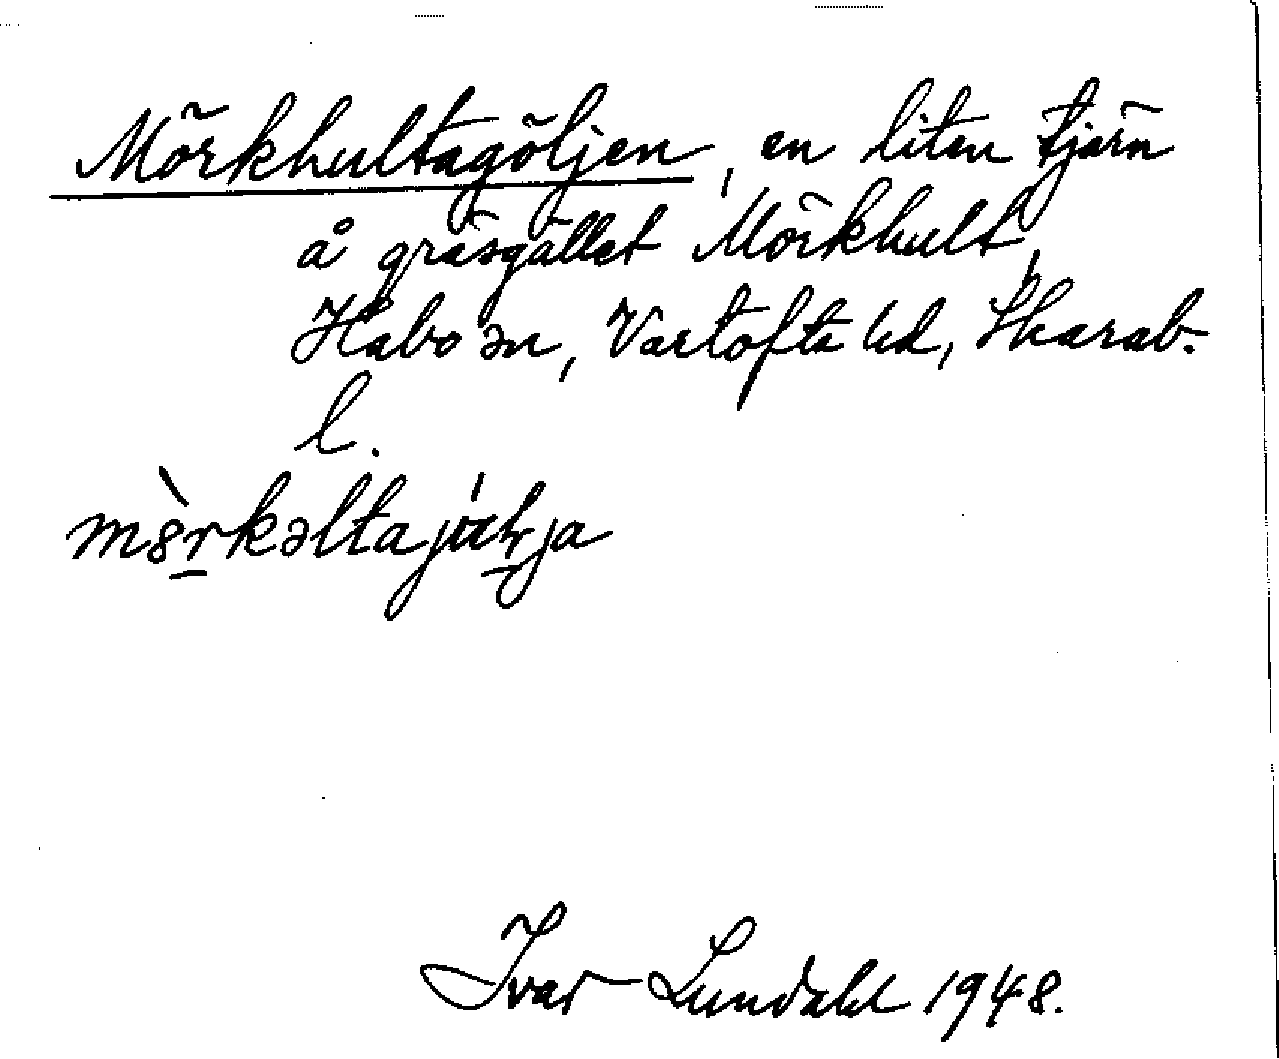 Mörkhultagöljen, en liten tjärn
å gräsgället Mörkhult,
Habo sn, Vartofta hd, Skarab.
l.
Ivar Lundahl 1948.